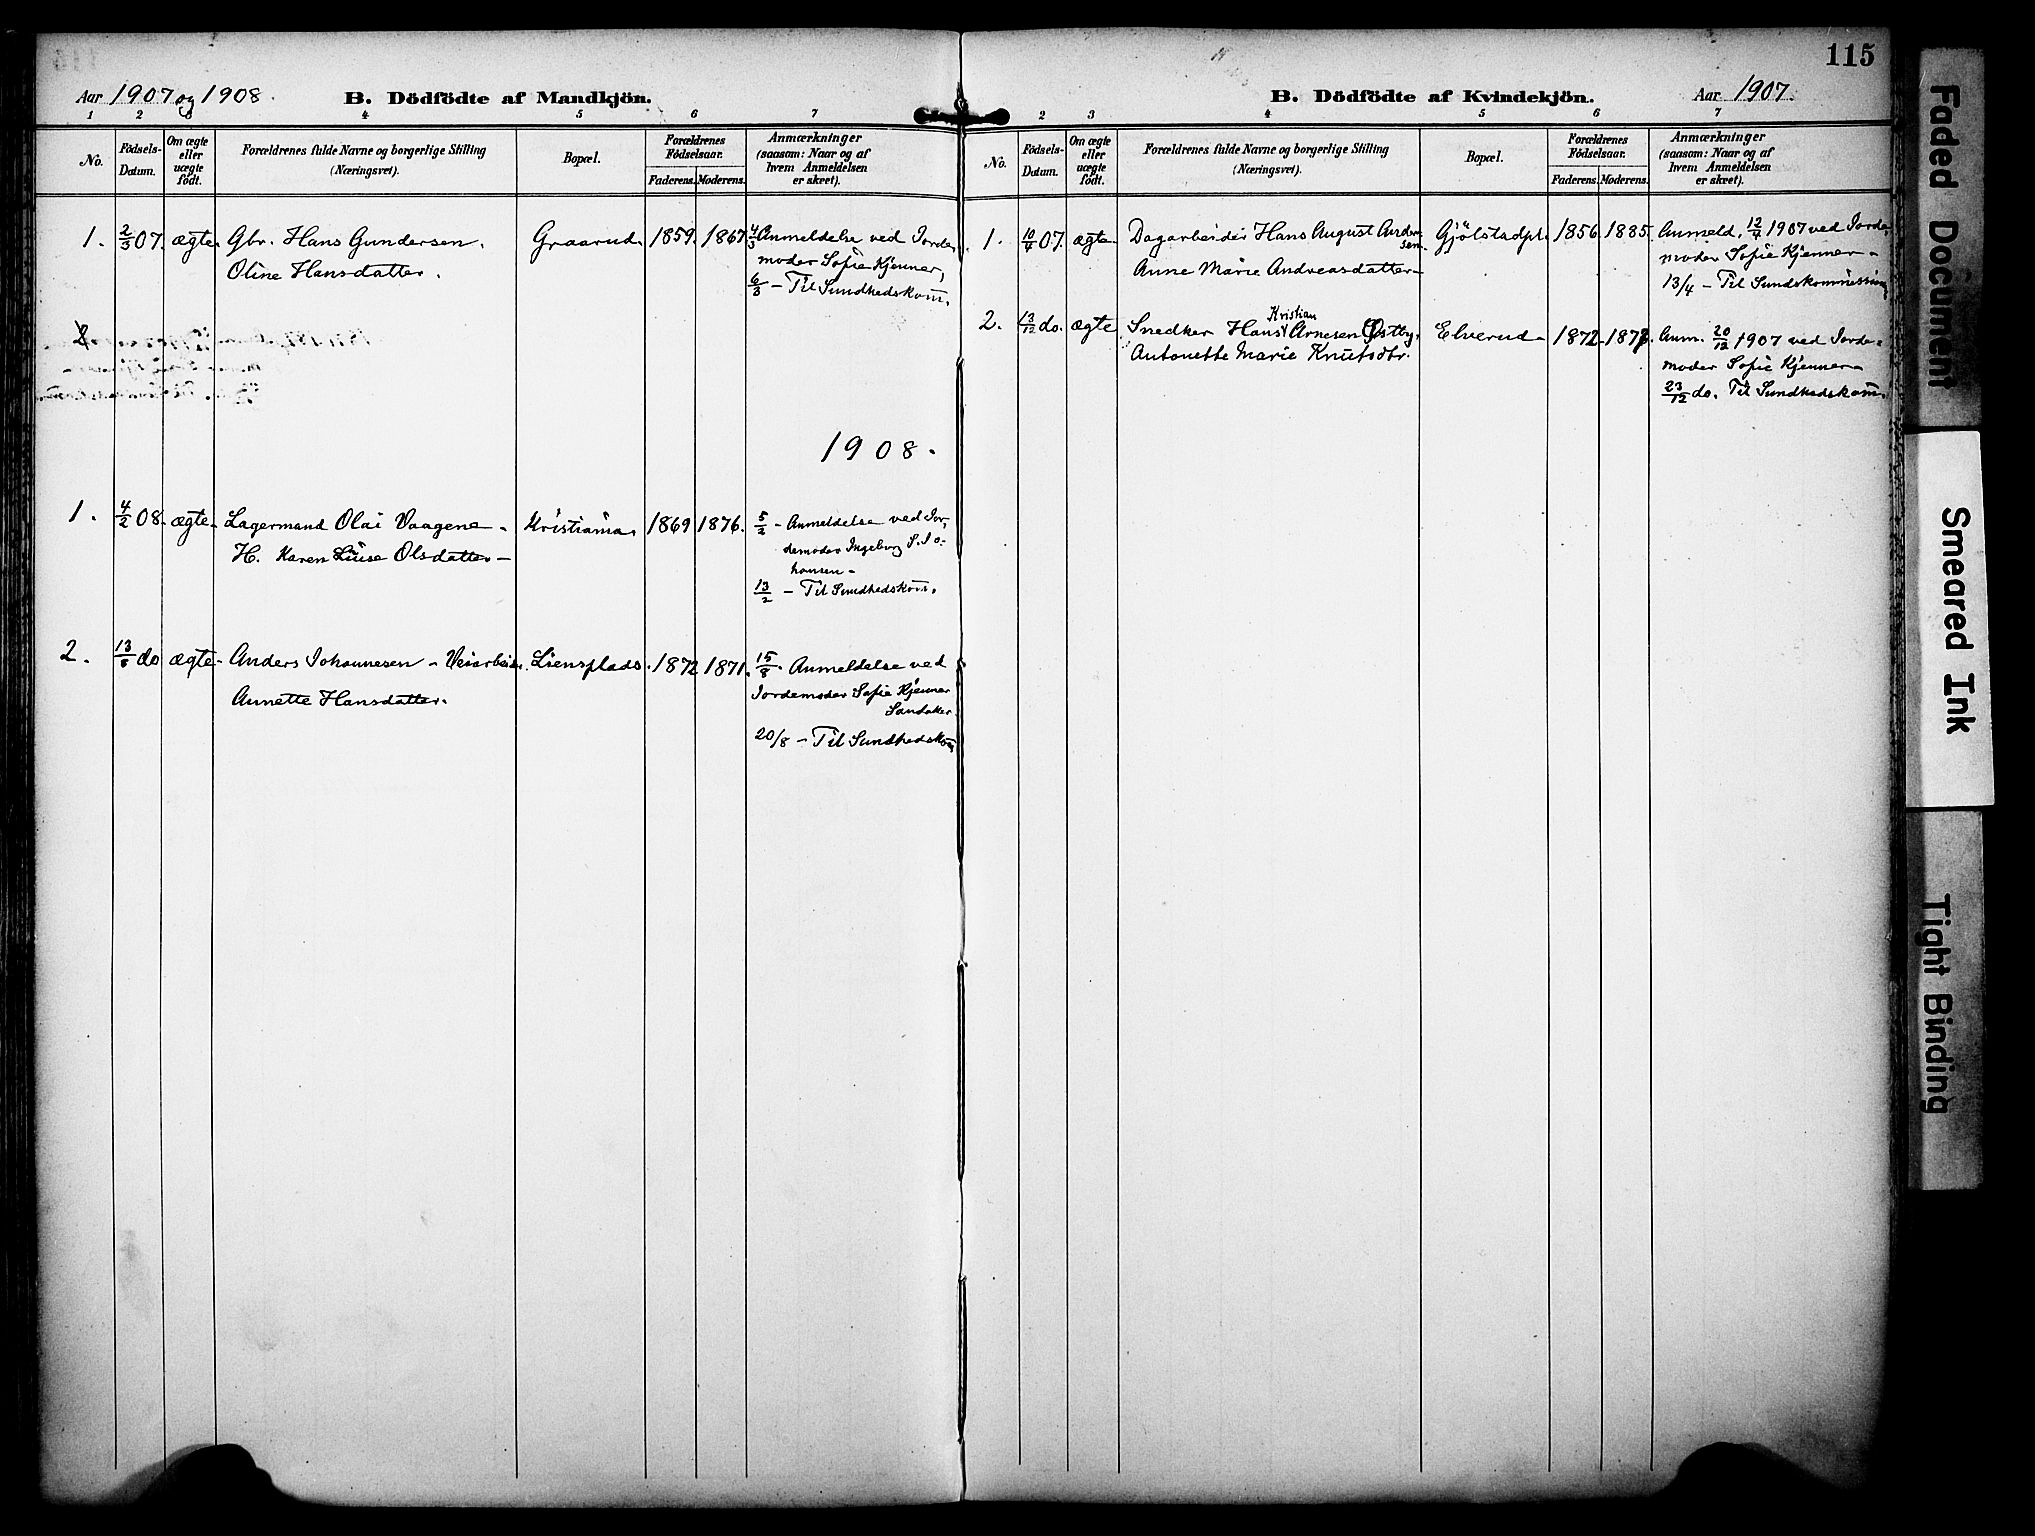 115
Aar 1907 og 1908. B. Dödfödte af Mandkjön.
1 2 3 4 5 6 7
No. Födsels-Datum. Om ægte eller uægte födt. Forældrenes fulde Navne og borgerlige Stilling (Næringsvei). Bopæl. Forældrenes Födselsaar. Faderens. Moderens. Anmærkninger (saasom: Naar og af hvem Anmeldelsen er skeet).
1. 2/3 07. ægte. Gbr. Hans Gundersen. Graarud. 1859. 1867. 4/3 Anmeldelse ved Jorde-
Oline Hansdatter. moder Sofie Kjenner,
6/3 - Til Sundhedskom.
2
1908.
1. 4/2 08. ægte. Lagermand Olai Vaagene - Kristiania. 1869 1876. 5/2 - Anmeldelse ved Jor-
H. Karen Luise Olsdatter - demoder Ingeborg S. Jo-
hansen -
13/2 - Til Sundhedskom.
2. 13/8 do ægte. Anders Johannesen - Veiarbeider. Liensplads. 1872 1871. 15/8. Anmeldelse ved
Annette Hansdatter. Jordemoder Sofie Kjenner
Sandaker.
20/8 - Til Sundhedskom
B. Dödfödte af Kvindekjön. Aar 1907.
2 3 4 5 6 7
No. Födsels-Datum. Om ægte eller uægte födt. Forældrenes fulde Navne og borgerlige Stilling (Næringsvei). Bopæl. Forældrenes Födselsaar. Faderens. Moderens. Anmærkninger (saasom: Naar og af hvem Anmeldelsen er skeet).
1. 10/4 07. ægte. Dagarbeider Hans August Andrea- Gjölstadpl. 1856. 1885. Anmeld. 12/4 1907 ved Jorde-
sen.
Anne Marie Andreasdatter - moder Sofie Kjenner -
13/4 - Til Sundskommission
Kristian
2. 13/12 do. ægte Snedker Hans Arnesen Østby. Elverud - 1872 - 1873. Anm. 20/12 1907 ved Jorde-
Antonette Marie Knutsdtr. moder Sofie Kjenner -
23/12 do. Til Sundhedskom.
Faded Document
Smeared Ink
Tight Binding